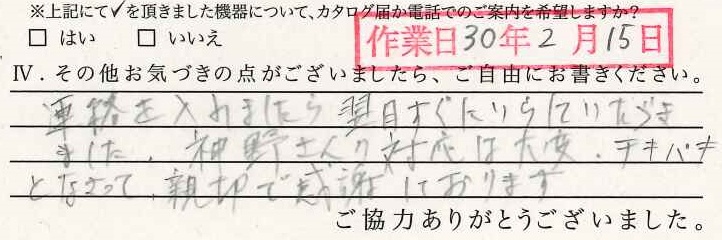 ※上記にて✓を頂きました機器について、カタログ届か電話でのご案内を希望しますか?
□ はい □ いいえ
作業日30年2月15日
Ⅳ．その他お気づきの点がございましたら、ご自由にお書きください。
連絡を入れましたら翌日すぐにいらしていただき
ました。神野さんの対応は大変、テキパキ
となさって、親切で感謝しております
ご協力ありがとうございました。